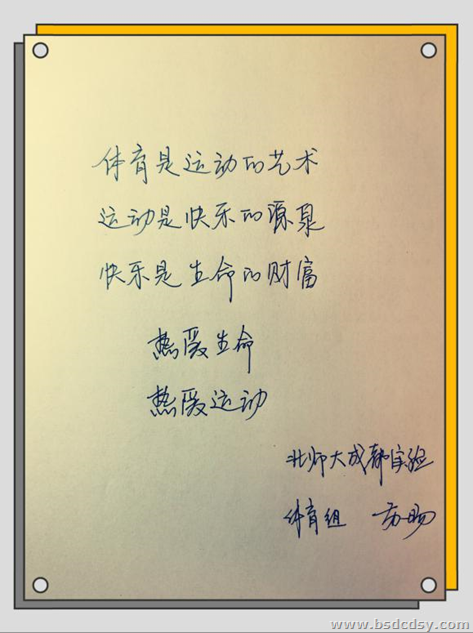 体育是运动的艺术
运动是快乐的源泉
快乐是生命的财富
热爱生命
热爱运动
北师大成都实验
体育组 苏旸
www.bsdcdsy.com